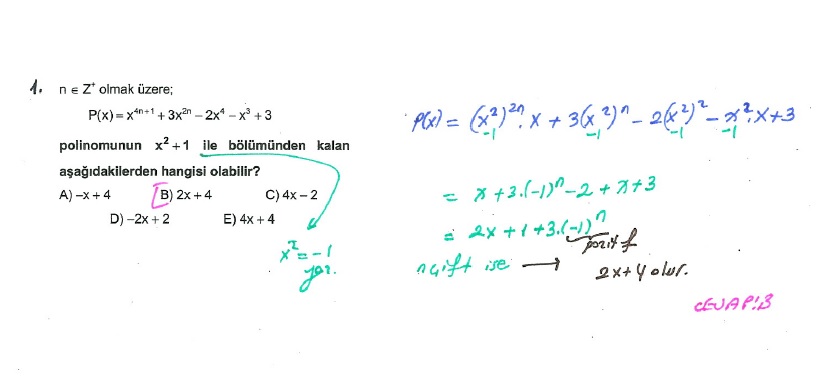 1. n ∈ Z⁺ olmak üzere;
P(x) = x⁴ⁿ⁺¹ + 3x²ⁿ – 2x⁴ – x³ + 3
polinomunun x² + 1 ile bölümünden kalan
aşağıdakilerden hangisi olabilir?
A) –x + 4 B) 2x + 4 C) 4x – 2
D) –2x + 2 E) 4x + 4
x² = –1
yaz.
P(x) = (x²)²ⁿ. x + 3(x²)ⁿ – 2(x²)² – x².x + 3
–1 –1 –1 –1
= x + 3.(–1)ⁿ – 2 + x + 3
= 2x + 1 + 3.(–1)ⁿ
pozitif
n çift ise → 2x + 4 olur.
CEVAP:B